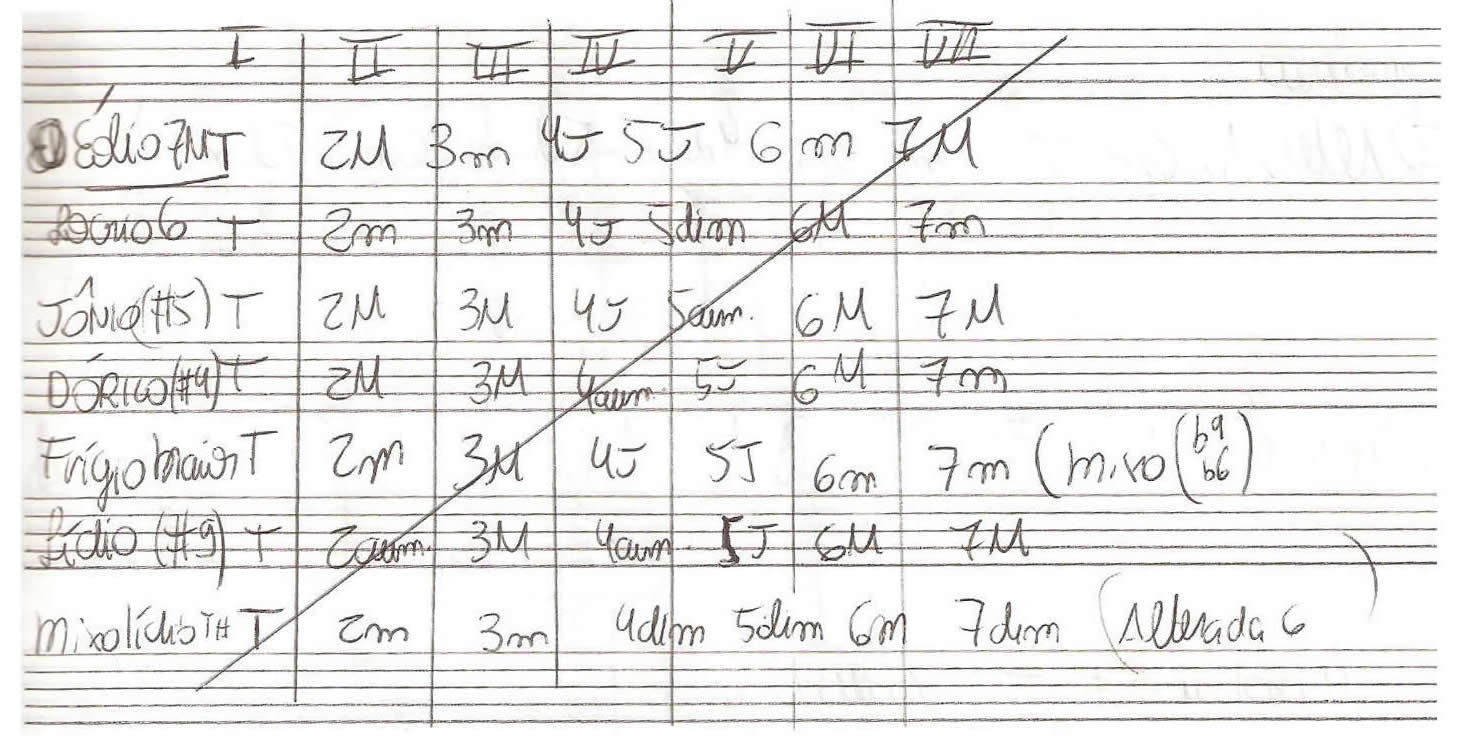 I II III IV V VI VII
Eólio 7M T 2M 3m 4J 5J 6m 7M
Lócrio 6 T 2m 3m 4J 5dim 6M 7m
JÔNIO(#5) T 2M 3M 4J 5aum. 6M 7M
DÓRICO(#4) T 2M 3M 4aum. 5J 6M 7m
Frígio maior T 2m 3M 4J 5J 6m 7m (mixo (b9 b6)
Lídio (#9) T 2aum. 3M 4aum. 5J 6M 7M
Mixolídio T 2m 3m 4dim 5dim 6m 7dim (Alterada 6)